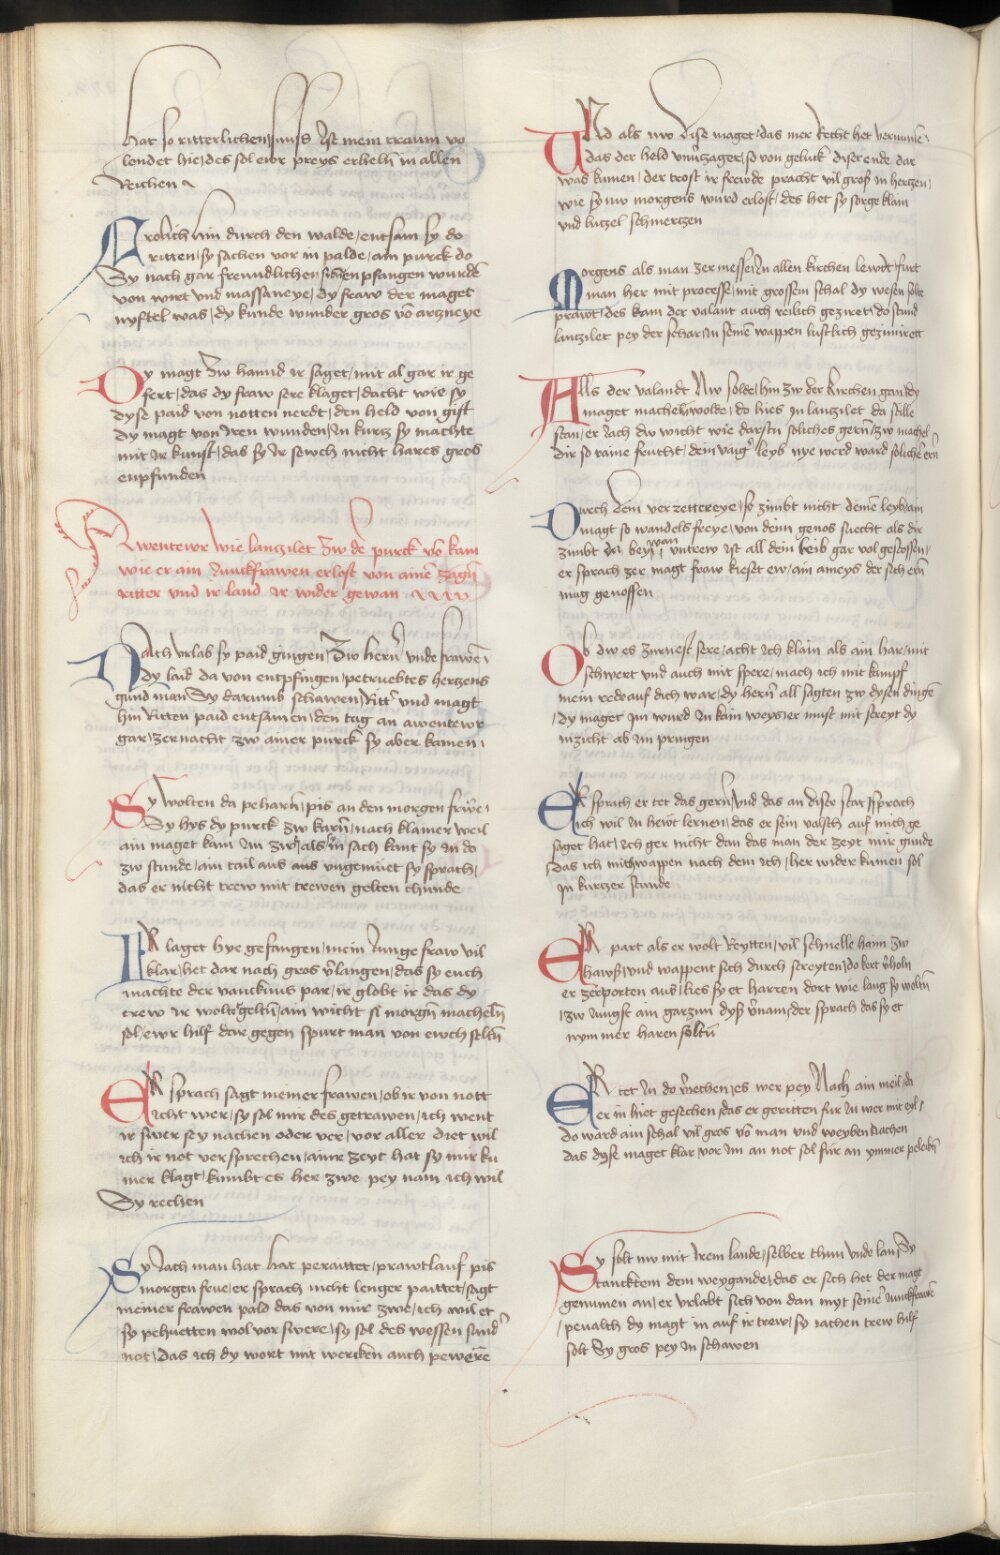 hat so ritterlichen sunß Ist mein traum vo
lendet hie / des sol ewr preys erhelń in allen
Reichen
Frölich hin durch den walde / entsam sy do
ritten / sy sachen vor in palde / ain purck do
Sy nach gar freundlichen siten enpfangen wurdē
von wirt vnd massaneye / dy fraw der maget
nyftel was / dy kunde wunder gros vō artzneye
Dy magt zw hannd ir saget / mit al gar ir ge
fert / das dy fraw sere klaget / dacht wie sy
dyse paid von notten nerdt / den held von gift
dy magt von Iren wunden / In kurtz sy machte
mit Ir kunst / das sy Ir sewch nicht hares gros
enpfunden
Awentewr wie lanzilet zw de purck vō kam
wie er ain Junckfrawen erlost von ainē zagñ
ritter vnd ir land ir wider gewan
Nach vrlab sy paid gingen / Zw herñ vnde frawē
dy laid da von entpfingen / petruebtes hertzens
gund man Sy darumb schawen / Ritt' vnd magt
hin Ritten paid entsamen / den tag an awentewr
gar / zer nacht zw ainer purck sy aber kamen
Sy wolten da peharñ / pis an den morgen frwe
Sy hys dy purck zw karñ / nach klainer weil
ain maget kam Im zw / als In sach kant sy In do
zw stunde / ain tail aus aus vngemuet sy sprach /
das er nicht trew mit trewen gelten chunde
IR laget hye gefangen / mein Junge fraw vil
klar / het dar nach gros v̄langen / das sy euch
machte der vancknus par / ir globt ir das dy
trew Ir wolt geltñ / ain wicht si morgñ machelñ
sol / ewr hilf dar gegen spurt man von ewch seltñ
ER sprach sagt meiner frawen / ob ir von nott
icht wer / sy sol mir des getrawen / ich went
ir swer sey nachen oder ver / vor aller diet wil
ich ir not versprechen / ainr zeyt hat sy mir ku
mer klagt / kumbt es her zwe pey nam ich wil
Sy rechen
Sy Jach man hat hat peraittet / prawtlauf pis
morgen frue / er sprach nicht lenger paittet / sagt
meiner frawen pald das von mir zwe / ich wil et
sy pehuetten wol vor swere / sy sol des wessen sund'
not / das ich dy wort mit wercken auch pewere
VNd als nw dise maget / das mer Recht het vernumē
das der held vnūzaget / so von geluck diser ende dar
was kumen / der trost ir frewde pracht vil groß In hertzen /
wie sy nw morgens wurd erlost / des het sy sorge klain
vnd lutzel schmertzen
Morgens als man zer messe / In allen kirchen lewtt / furt
man her mit processe / mit grossem schal dy wesen solte
prawt / des kam der valant auch reilich geziret / do stund
lanzilet pey der schar / In seinē wappen lustlich gezimirett
Als der valandt Nw solde / hin zw der kirchen gan / dy
maget macheln wolde / do hies In lanzilet da stille
stan / er Jach dw wicht wie darstu soliches gerñ / zw machel
dir so raine frucht / dein vaig' leyb nye werd ward solicher erñ
Durch dein verzettereye / so zimbt nicht deinē leyb / ain
magt so wandels freye / von deim genos suecht als dir
zimbt da bey wan vntrew ist all dein leib gar vol gegossen /
er sprach zer magt fraw kieset ew / ain ameys der sich erñ
mug genossen
Ob dw es zurnest sere / acht ich klain als ain har / mit
schwert vnd auch mit spere / mach ich mit kampf
mein rede auf dich war / dy herñ all sagten zw dysen dingē
dy maget Im wurd In kain weys / er must mit streyt dy
inzicht ab im pringen
ER sprach er tet das gerñ / vnd das an diser stat / sprach
ich wil In hewt lernen / das er sein valsch auf mich ge
saget hat / ich ger nicht dan das man der zeyt mir gunde
das ich mich wappen nach dem ich / her wider kumen sol
In kurtzer stunde
ER part als er wolt Reytten / vil schnelle haim zw
hawß / vnd wappent sich durch streyten / do kert v̄holn
er zer porten aus / lies sy et harren dort wie lang sy woltñ
/ zw Jungst ain garzun dyß v̄nam / der sprach das sy et
nymmer haren soltñ
ER tet In do v̄iechen / es wer pey Nach ain meil / da
er in hiet gesechen / das er geritten fur In wer mit eyl /
do ward ain schal vil gros vō man vnd weyben / sachen
das dyse maget klar / vor im an not sol fur an ymmer peleibñ
Sy solt nw mit Irem lande / selber thun vnde lan / Sy
Stanckten dem weygande / das er sich het der magt
genumen an / er vrlabt sich von dan myt seinē Junckfrawē
/ peualch dy magt in auf ir trew / sy iachen trew hilf
solt Sy gros pey In schawen